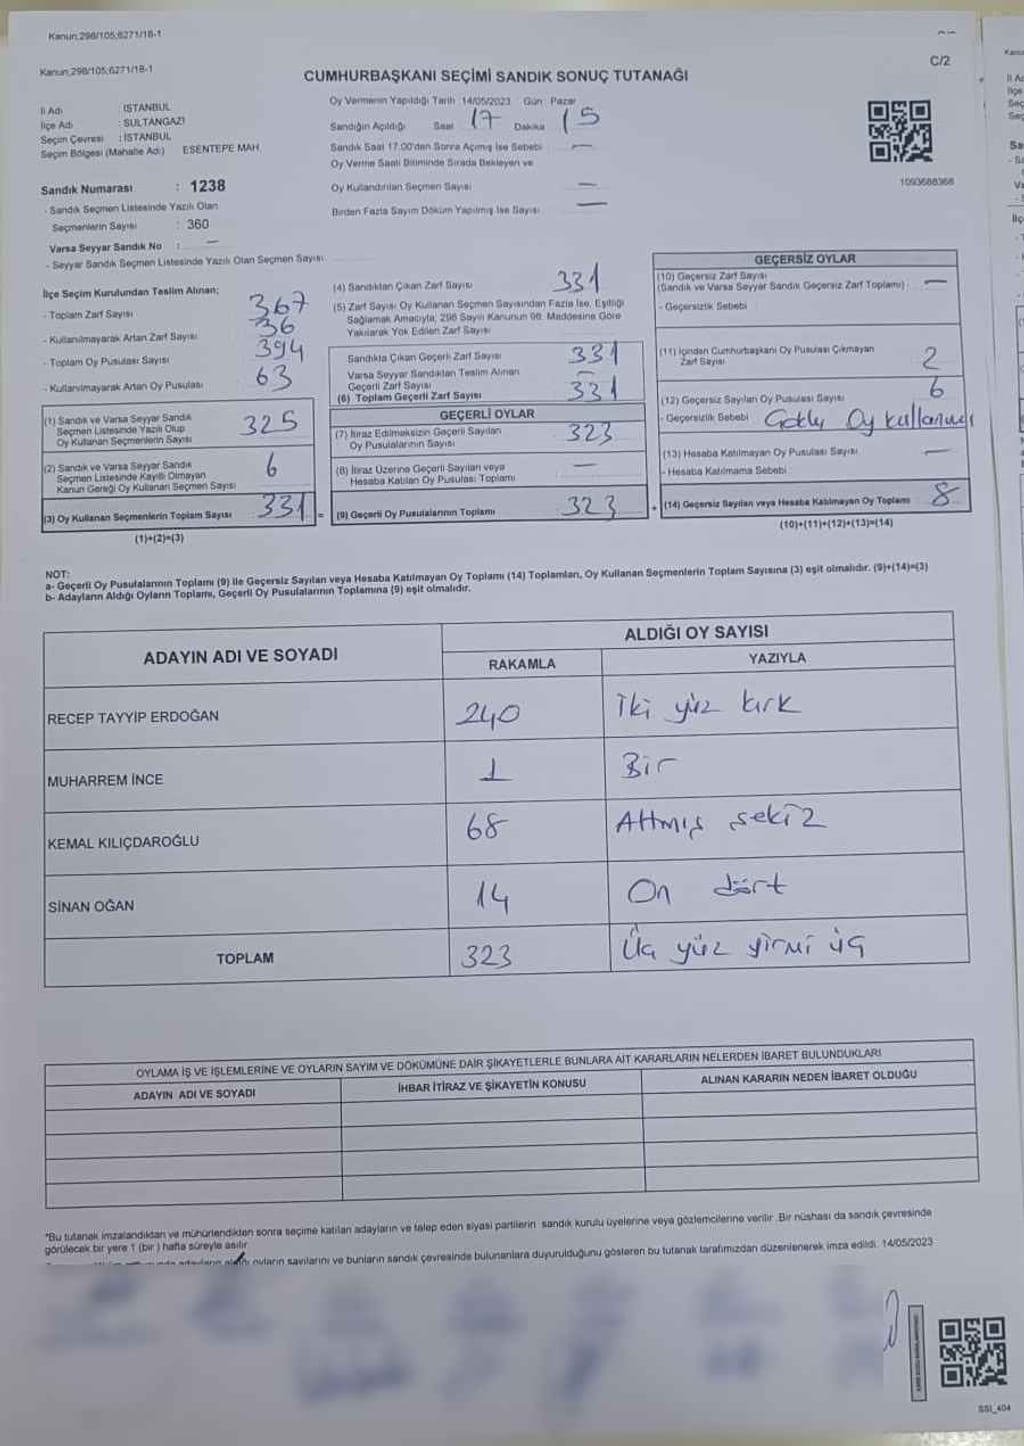 Kanun,298/105,6271/18-1
Kanun,298/105,6271/18-1
C/2
CUMHURBAŞKANI SEÇİMİ SANDIK SONUÇ TUTANAĞI
İl Adı : İSTANBUL
İlçe Adı : SULTANGAZİ
Seçim Çevresi : İSTANBUL
Seçim Bölgesi (Mahalle Adı) ESENTEPE MAH.
Sandık Numarası : 1238
- Sandık Seçmen Listesinde Yazılı Olan
Seçmenlerin Sayısı : 360
Varsa Seyyar Sandık No : —
- Seyyar Sandık Seçmen Listesinde Yazılı Olan Seçmen Sayısı
Oy Vermenin Yapıldığı Tarih :14/05/2023 Gün : Pazar
Sandığın Açıldığı Saat 17 Dakika 15
Sandık Saat 17:00'den Sonra Açılmış İse Sebebi —
Oy Verme Saati Bitiminde Sırada Bekleyen ve
Oy Kullandırılan Seçmen Sayısı —
Birden Fazla Sayım Döküm Yapılmış İse Sayısı —
1093688368
İlçe Seçim Kurulundan Teslim Alınan;
- Toplam Zarf Sayısı 367
- Kullanılmayarak Artan Zarf Sayısı 36
- Toplam Oy Pusulası Sayısı 394
- Kullanılmayarak Artan Oy Pusulası 63
(1) Sandık ve Varsa Seyyar Sandık
Seçmen Listesinde Yazılı Olup
Oy Kullanan Seçmenlerin Sayısı 325
(2) Sandık ve Varsa Seyyar Sandık
Seçmen Listesinde Kayıtlı Olmayan
Kanun Gereği Oy Kullanan Seçmen Sayısı 6
(3) Oy Kullanan Seçmenlerin Toplam Sayısı 331 =
(1)+(2)=(3)
(4) Sandıktan Çıkan Zarf Sayısı 331
(5) Zarf Sayısı Oy Kullanan Seçmen Sayısından Fazla İse, Eşitliği
Sağlamak Amacıyla, 298 Sayılı Kanunun 98. Maddesine Göre
Yakılarak Yok Edilen Zarf Sayısı
Sandıkta Çıkan Geçerli Zarf Sayısı 331
Varsa Seyyar Sandıktan Teslim Alınan
Geçerli Zarf Sayısı —
(6) Toplam Geçerli Zarf Sayısı 331
GEÇERLİ OYLAR
(7) İtiraz Edilmeksizin Geçerli Sayılan
Oy Pusulalarının Sayısı 323
(8) İtiraz Üzerine Geçerli Sayılan veya
Hesaba Katılan Oy Pusulası Toplamı —
(9) Geçerli Oy Pusulalarının Toplamı 323 +
GEÇERSİZ OYLAR
(10) Geçersiz Zarf Sayısı
(Sandık ve Varsa Seyyar Sandık Geçersiz Zarf Toplamı) —
- Geçersizlik Sebebi
(11) İçinden Cumhurbaşkanı Oy Pusulası Çıkmayan
Zarf Sayısı 2
(12) Geçersiz Sayılan Oy Pusulası Sayısı 6
- Geçersizlik Sebebi Oy
(13) Hesaba Katılmayan Oy Pusulası Sayısı —
- Hesaba Katılmama Sebebi
(14) Geçersiz Sayılan veya Hesaba Katılmayan Oy Toplamı 8
(10)+(11)+(12)+(13)=(14)
NOT:
a- Geçerli Oy Pusulalarının Toplamı (9) ile Geçersiz Sayılan veya Hesaba Katılmayan Oy Toplamı (14) Toplamları, Oy Kullanan Seçmenlerin Toplam Sayısına (3) eşit olmalıdır. (9)+(14)=(3)
b- Adayların Aldığı Oyların Toplamı, Geçerli Oy Pusulalarının Toplamına (9) eşit olmalıdır.
ADAYIN ADI VE SOYADI
ALDIĞI OY SAYISI
RAKAMLA YAZIYLA
RECEP TAYYİP ERDOĞAN 240 İki yüz kırk
MUHARREM İNCE 1 Bir
KEMAL KILIÇDAROĞLU 68 Altmış sekiz
SİNAN OĞAN 14 On dört
TOPLAM 323 Üç yüz yirmi üç
OYLAMA İŞ VE İŞLEMLERİNE VE OYLARIN SAYIM VE DÖKÜMÜNE DAİR ŞİKAYETLERLE BUNLARA AİT KARARLARIN NELERDEN İBARET BULUNDUKLARI
ADAYIN ADI VE SOYADI İHBAR İTİRAZ VE ŞİKAYETİN KONUSU ALINAN KARARIN NEDEN İBARET OLDUĞU
*Bu tutanak imzalandıktan ve mühürlendikten sonra seçime katılan adayların ve talep eden siyasi partilerin sandık kurulu üyelerine veya gözlemcilerine verilir .Bir nüshası da sandık çevresinde
görülecek bir yere 1 (bir ) hafta süreyle asılır
oyların sayılarını ve bunların sandık çevresinde bulunanlara duyurulduğunu gösteren bu tutanak tarafımızdan düzenlenerek imza edildi. 14/05/2023
SSI_404